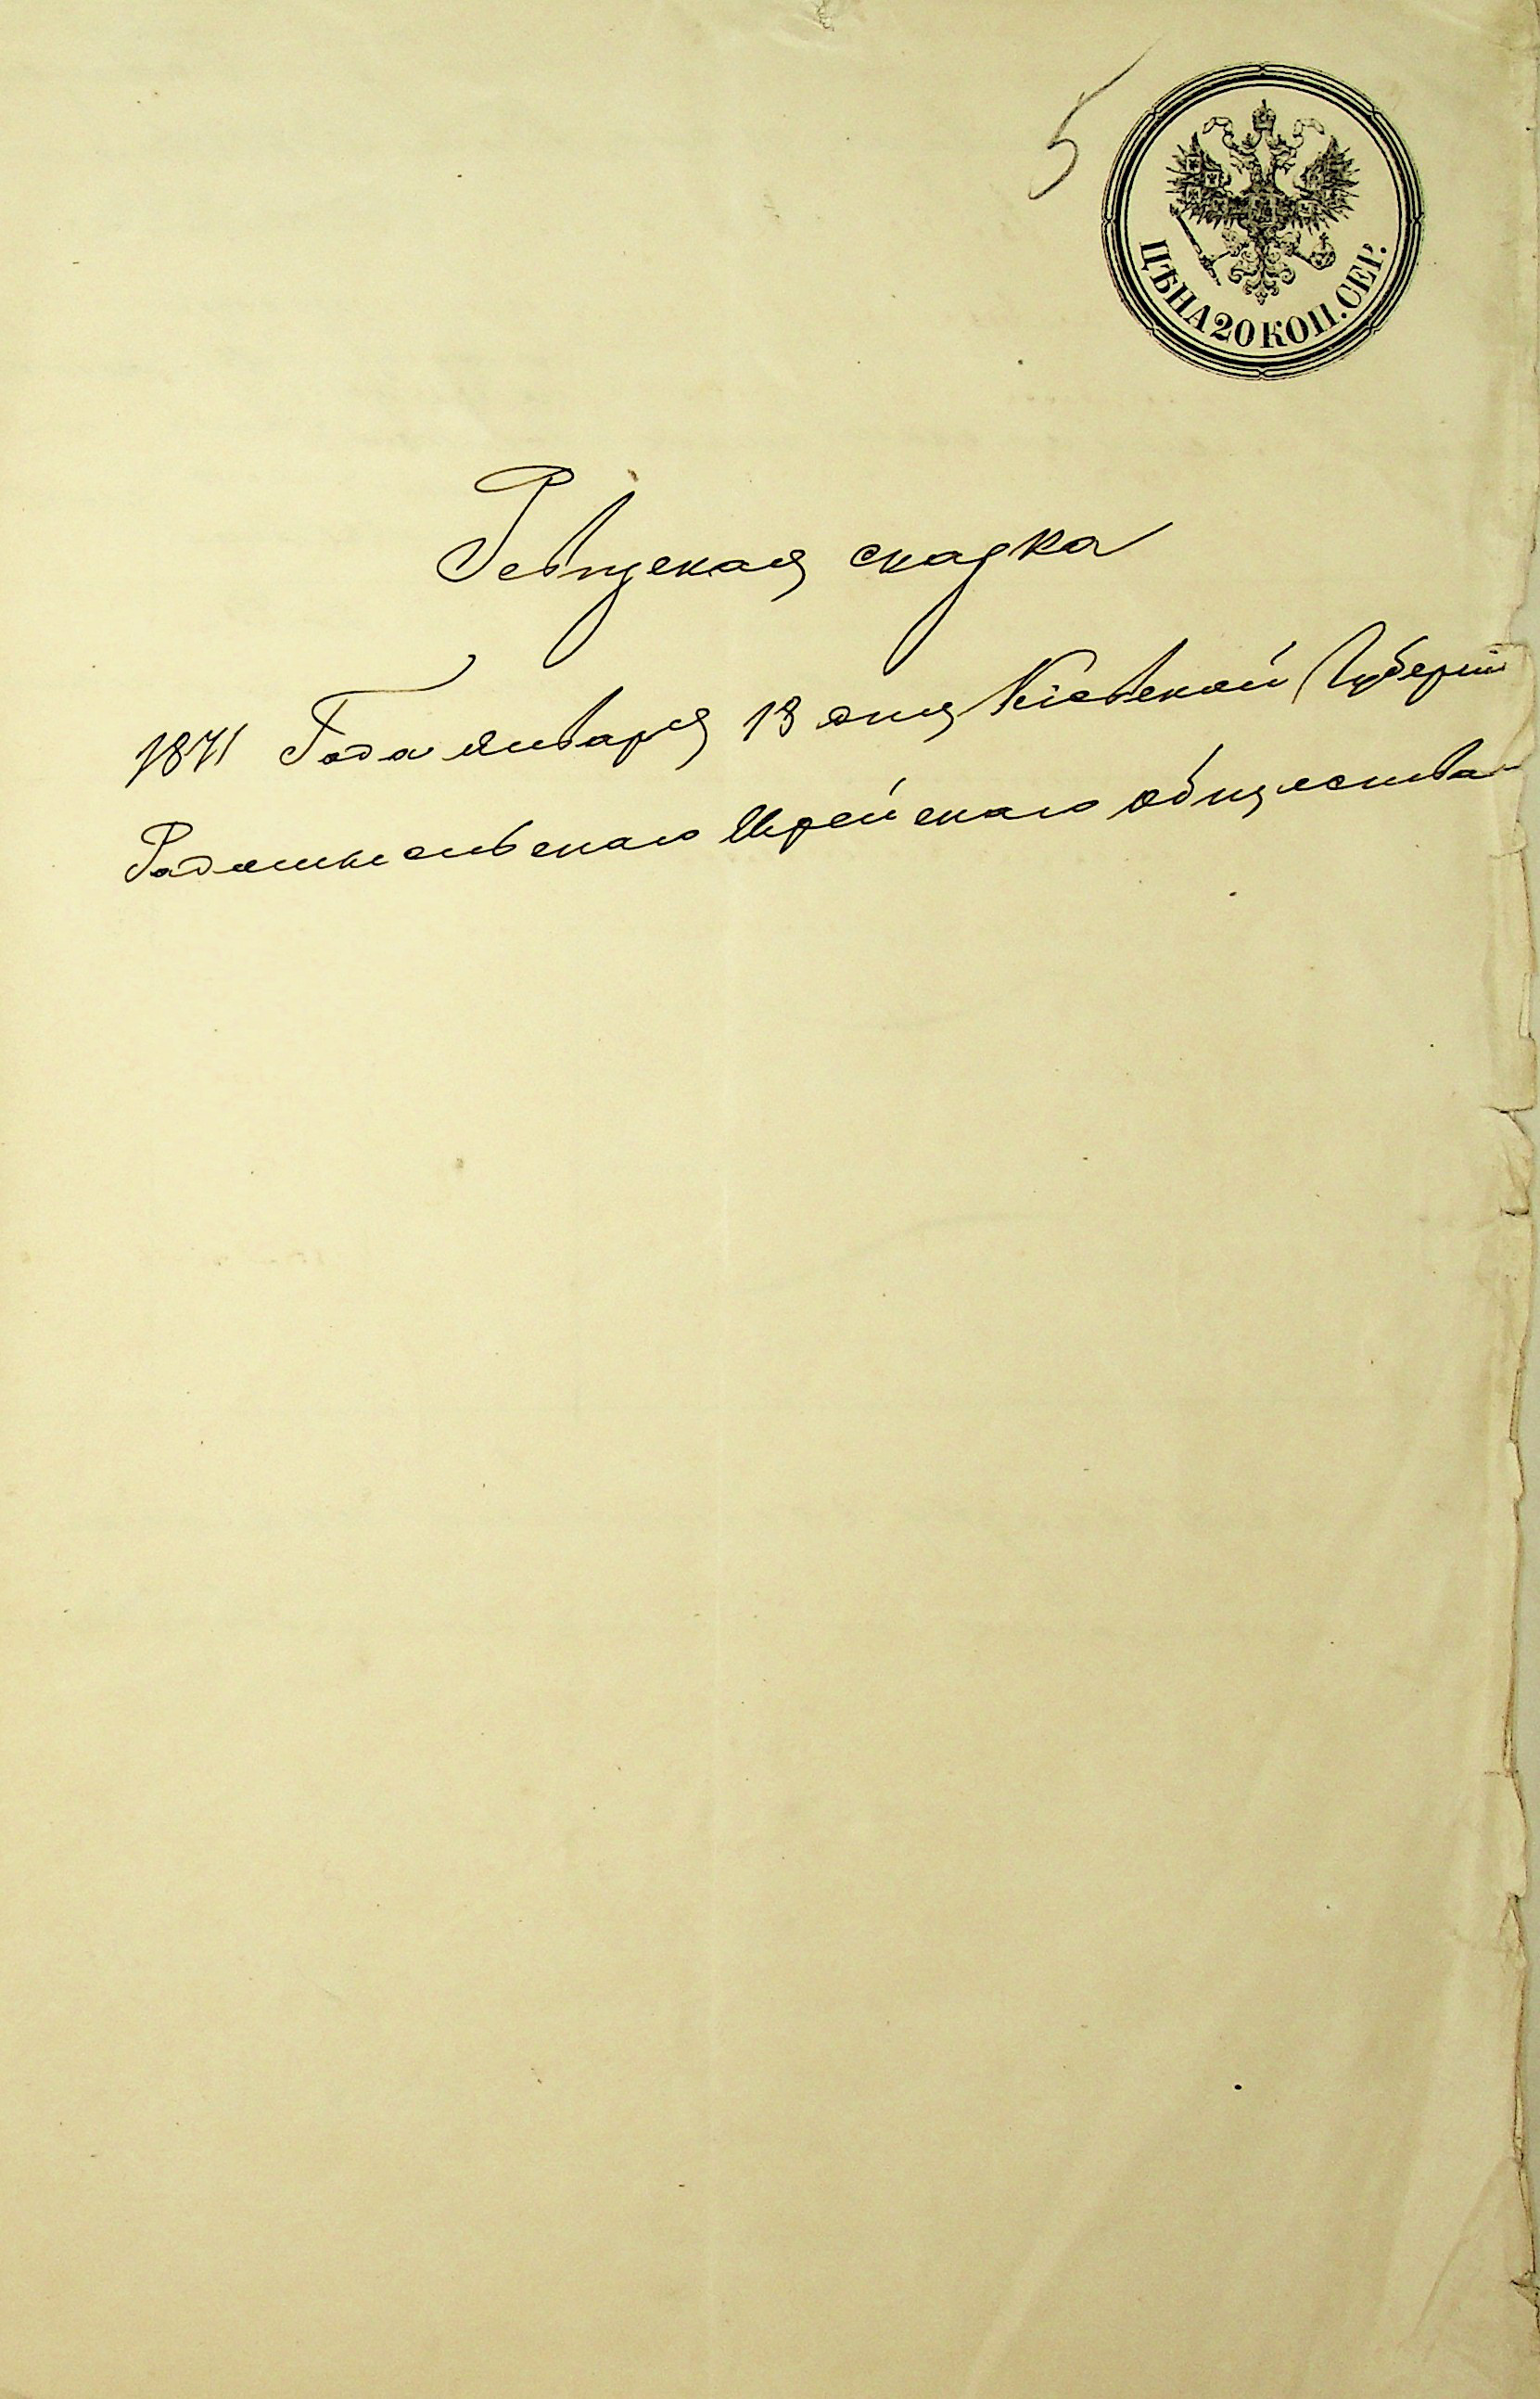 5
ЦѢНА 20 КОП. СЕР.
Ревизская сказка
1871 Года Января 13 дня Кіевской Губерніи
Радомысльскаго Еврейскаго общества